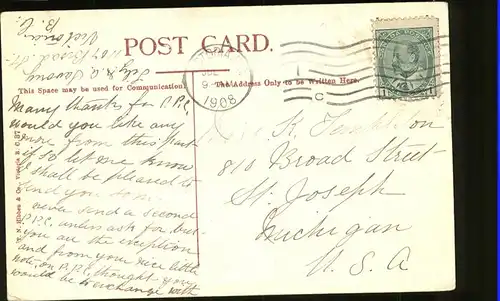 POST CARD.
This Space may be used for Communication.
The Address Only to be Written Here.
Victoria
B. C.
1908
C
CANADA POSTAGE
T. N. Hibben & Co., Victoria, B. C.
Many thanks for P.P.C.
would you like any
more from this part
if so let me know
I shall be pleased to
send you some
never send a second
P.P.C. unless ask for, but
you are the exception
and from your nice little
note, on P.P.C. thought you
would be exchange with
810 Broad Street
St. Joseph
Michigan
U. S. A